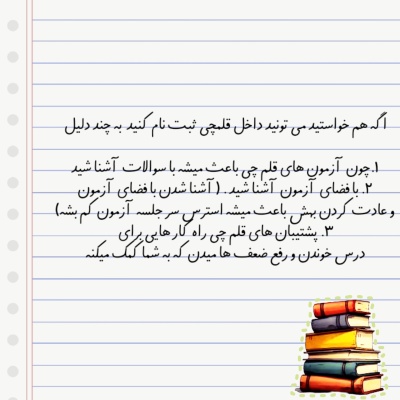 اگه هم خواستید می تونید داخل قلمچی ثبت نام کنید به چند دلیل
۱.چون آزمون های قلم چی باعث میشه با سوالات آشنا شید
۲. با فضای آزمون آشنا شید . ( آشنا شدن با فضای آزمون
و عادت کردن بهش باعث میشه استرس سر جلسه آزمون کم بشه)
۳. پشتیبان های قلم چی راه کار هایی برای
درس خوندن و رفع ضعف ها میدن که به شما کمک میکنه